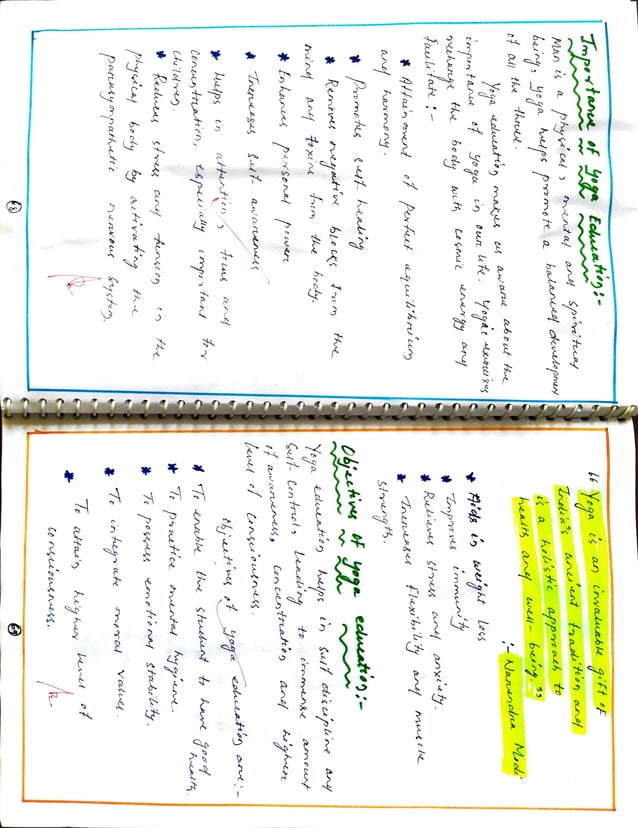 Importance of Yoga Education:-
Man is a physical, mental and spiritual
being, yoga helps promote a balanced development
of all the three.
Yoga education makes us aware about the
importance of yoga in our life. Yogic exercises
recharge the body with cosmic energy and
facilitate:-
* Attainment of perfect equilibrium
and harmony.
* Promotes self healing
* Removes negative blocks from the
mind and toxins from the body.
* Enhances personal power
* Increases self awareness
* Helps in attention, focus and
concentration, especially important for
children.
* Reduces stress and tension in the
physical body by activating the
parasympathetic nervous system.
68
“ Yoga is an invaluable gift of
India's ancient tradition and
is a holistic approach to
health and well-being ”
:- Narendra Modi
* Aids in weight loss
* Improves immunity
* Relieves stress and anxiety.
* Increases flexibility and muscle
strength.
Objectives of Yoga education:-
Yoga education helps in self discipline and
self control, leading to immense amount
of awareness, concentration and higher
level of consciousness.
Objectives of yoga education are:-
* To enable the student to have good
health.
* To practice mental hygiene.
* To possess emotional stability.
* To integrate moral values.
* To attain higher level of
consciousness.
69